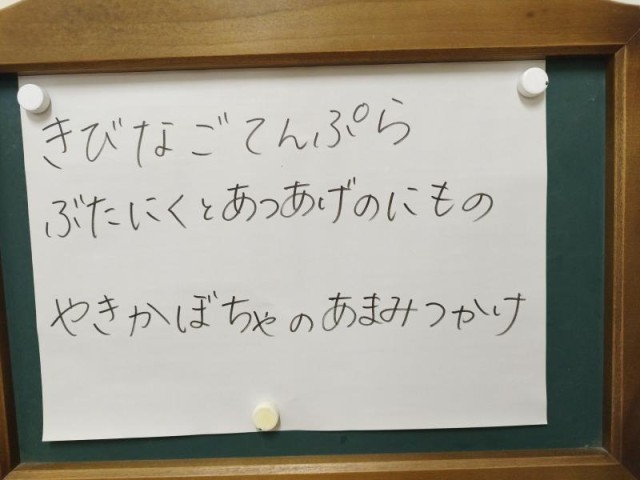 きびなごてんぷら
ぶたにくとあつあげのにもの
やきかぼちゃのあまみつかけ